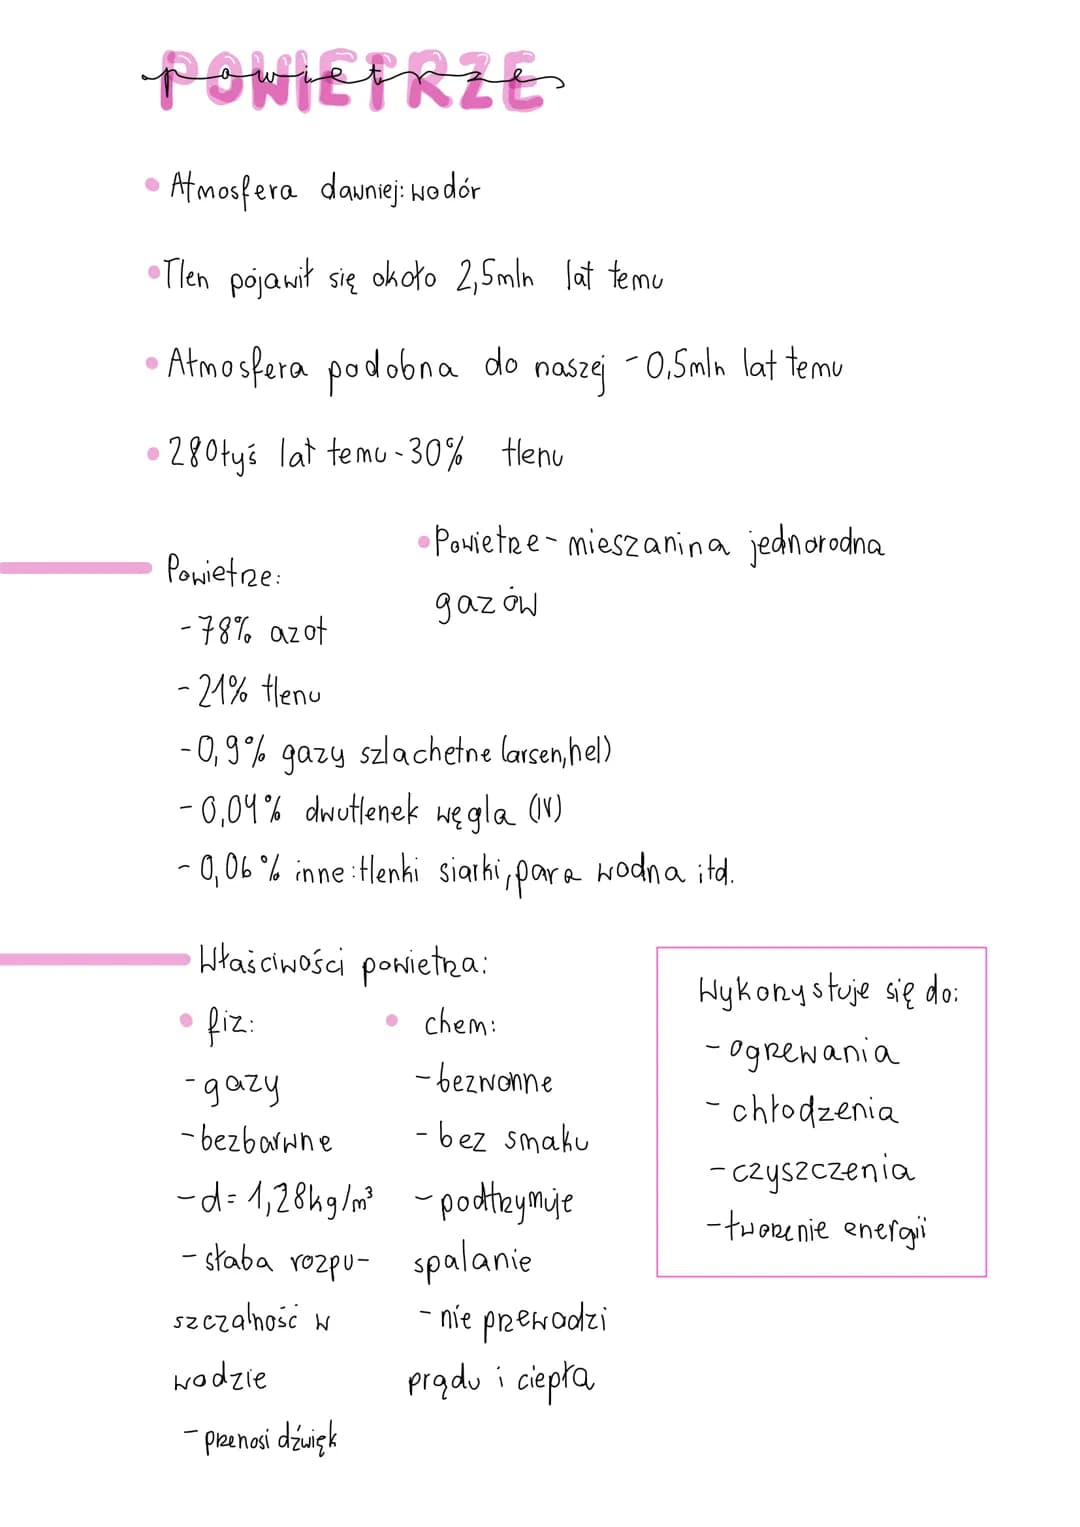 POWIETRZE
powietrze
• Atmosfera dawniej: wodór
• Tlen pojawił się około 2,5mln lat temu
• Atmosfera podobna do naszej - 0,5mln lat temu
• 280tyś lat temu - 30% tlenu
• Powietrze - mieszanina jednorodna
gazów
Powietrze:
- 78% azot
- 21% tlenu
- 0,9% gazy szlachetne (arsen, hel)
- 0,04% dwutlenek węgla (IV)
- 0,06% inne: tlenki siarki, para wodna itd.
Właściwości powietrza:
• fiz:
- gazy
- bezbarwne
- d= 1,28kg/m³
- słaba rozpu-
szczalność w
wodzie
- przenosi dźwięk
• chem:
- bezwonne
- bez smaku
- podtrzymuje
spalanie
- nie przewodzi
prądu i ciepła
Wykorzystuje się do:
- ogrzewania
- chłodzenia
- czyszczenia
- tworzenie energii